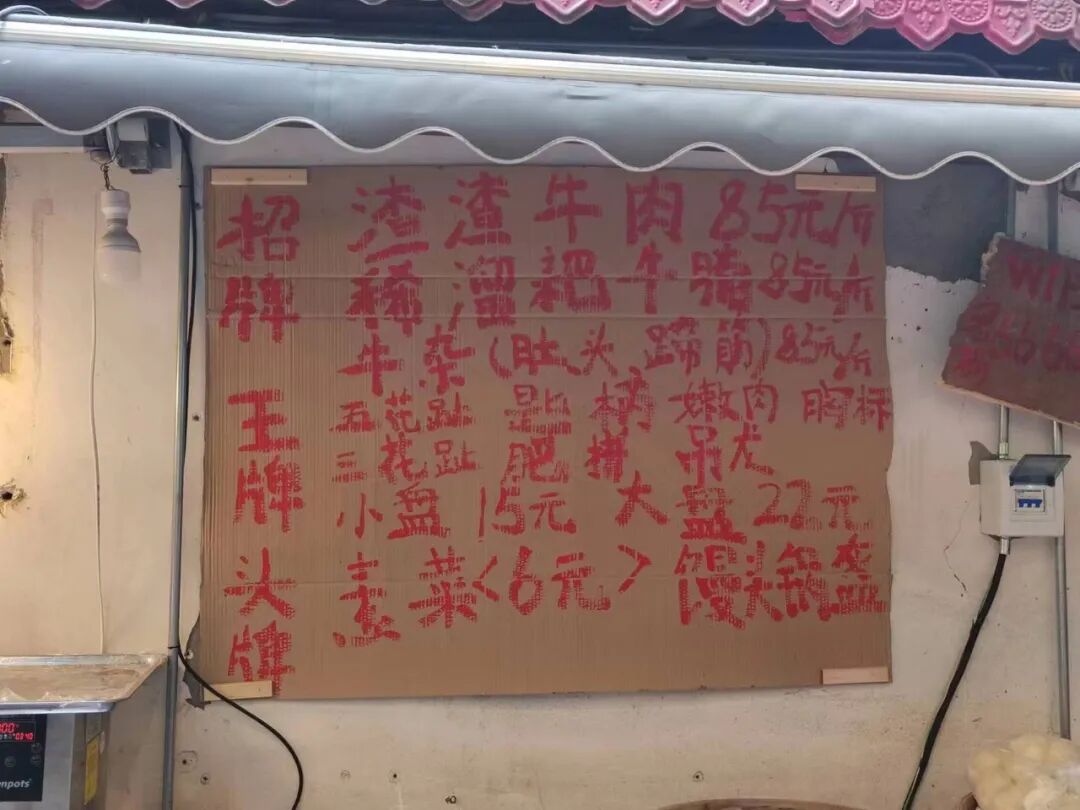 招牌
王牌
头牌
渣渣牛肉85元/斤
稀溜耙牛腩85元/斤
牛杂(肚头蹄筋)85元/斤
五花趾 匙柄 嫩肉 胸标
三花趾 肥拼 吊龙
小盘15元 大盘22元
素菜<6元> 馒头锅盔
WIF